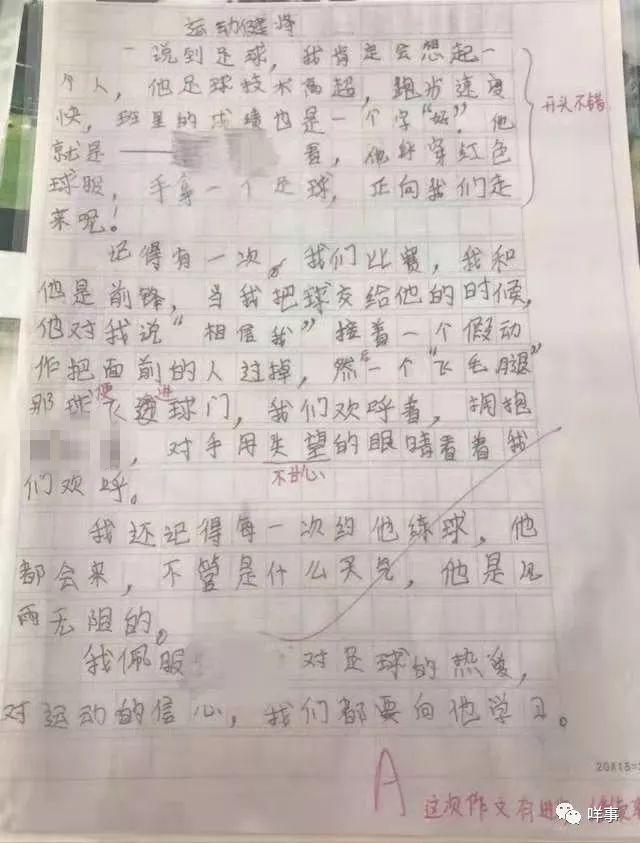 运动健将
说到足球，我肯定会想起一
个人，他足球技术高超，跑步速度
快，班里的成绩也是一个字“好”，他
就是——看，他身穿红色
球服，手拿一个足球，正向我们走
来呢！
开头不错
记得有一次，我们比赛，我和
他是前锋，当我把球交给他的时候，
他对我说“相信我”接着一个假动
作把面前的人过掉，然后一个“飞毛腿”
那球便飞进球门，我们欢呼着，拥抱
，对手用失望的眼睛看着我
不甘心
们欢呼。
我还记得每一次约他练球，他
都会来，不管是什么天气，他是风
雨无阻的。
我佩服对足球的热爱，
对运动的信心，我们都要向他学习。
A
这次作文有进
20X15=
咩事